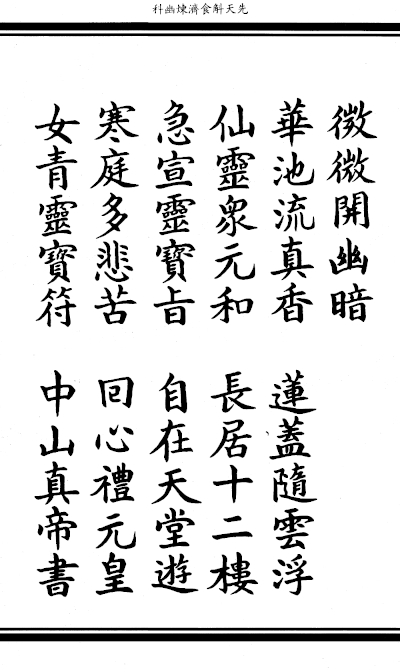 先天斛食濟煉幽科
微微開幽暗
華池流真香 蓮蓋隨雲浮
仙靈衆元和 長居十二樓
急宣靈寶旨 自在天堂遊
寒庭多悲苦 回心禮元皇
女青靈寶符 中山真帝書